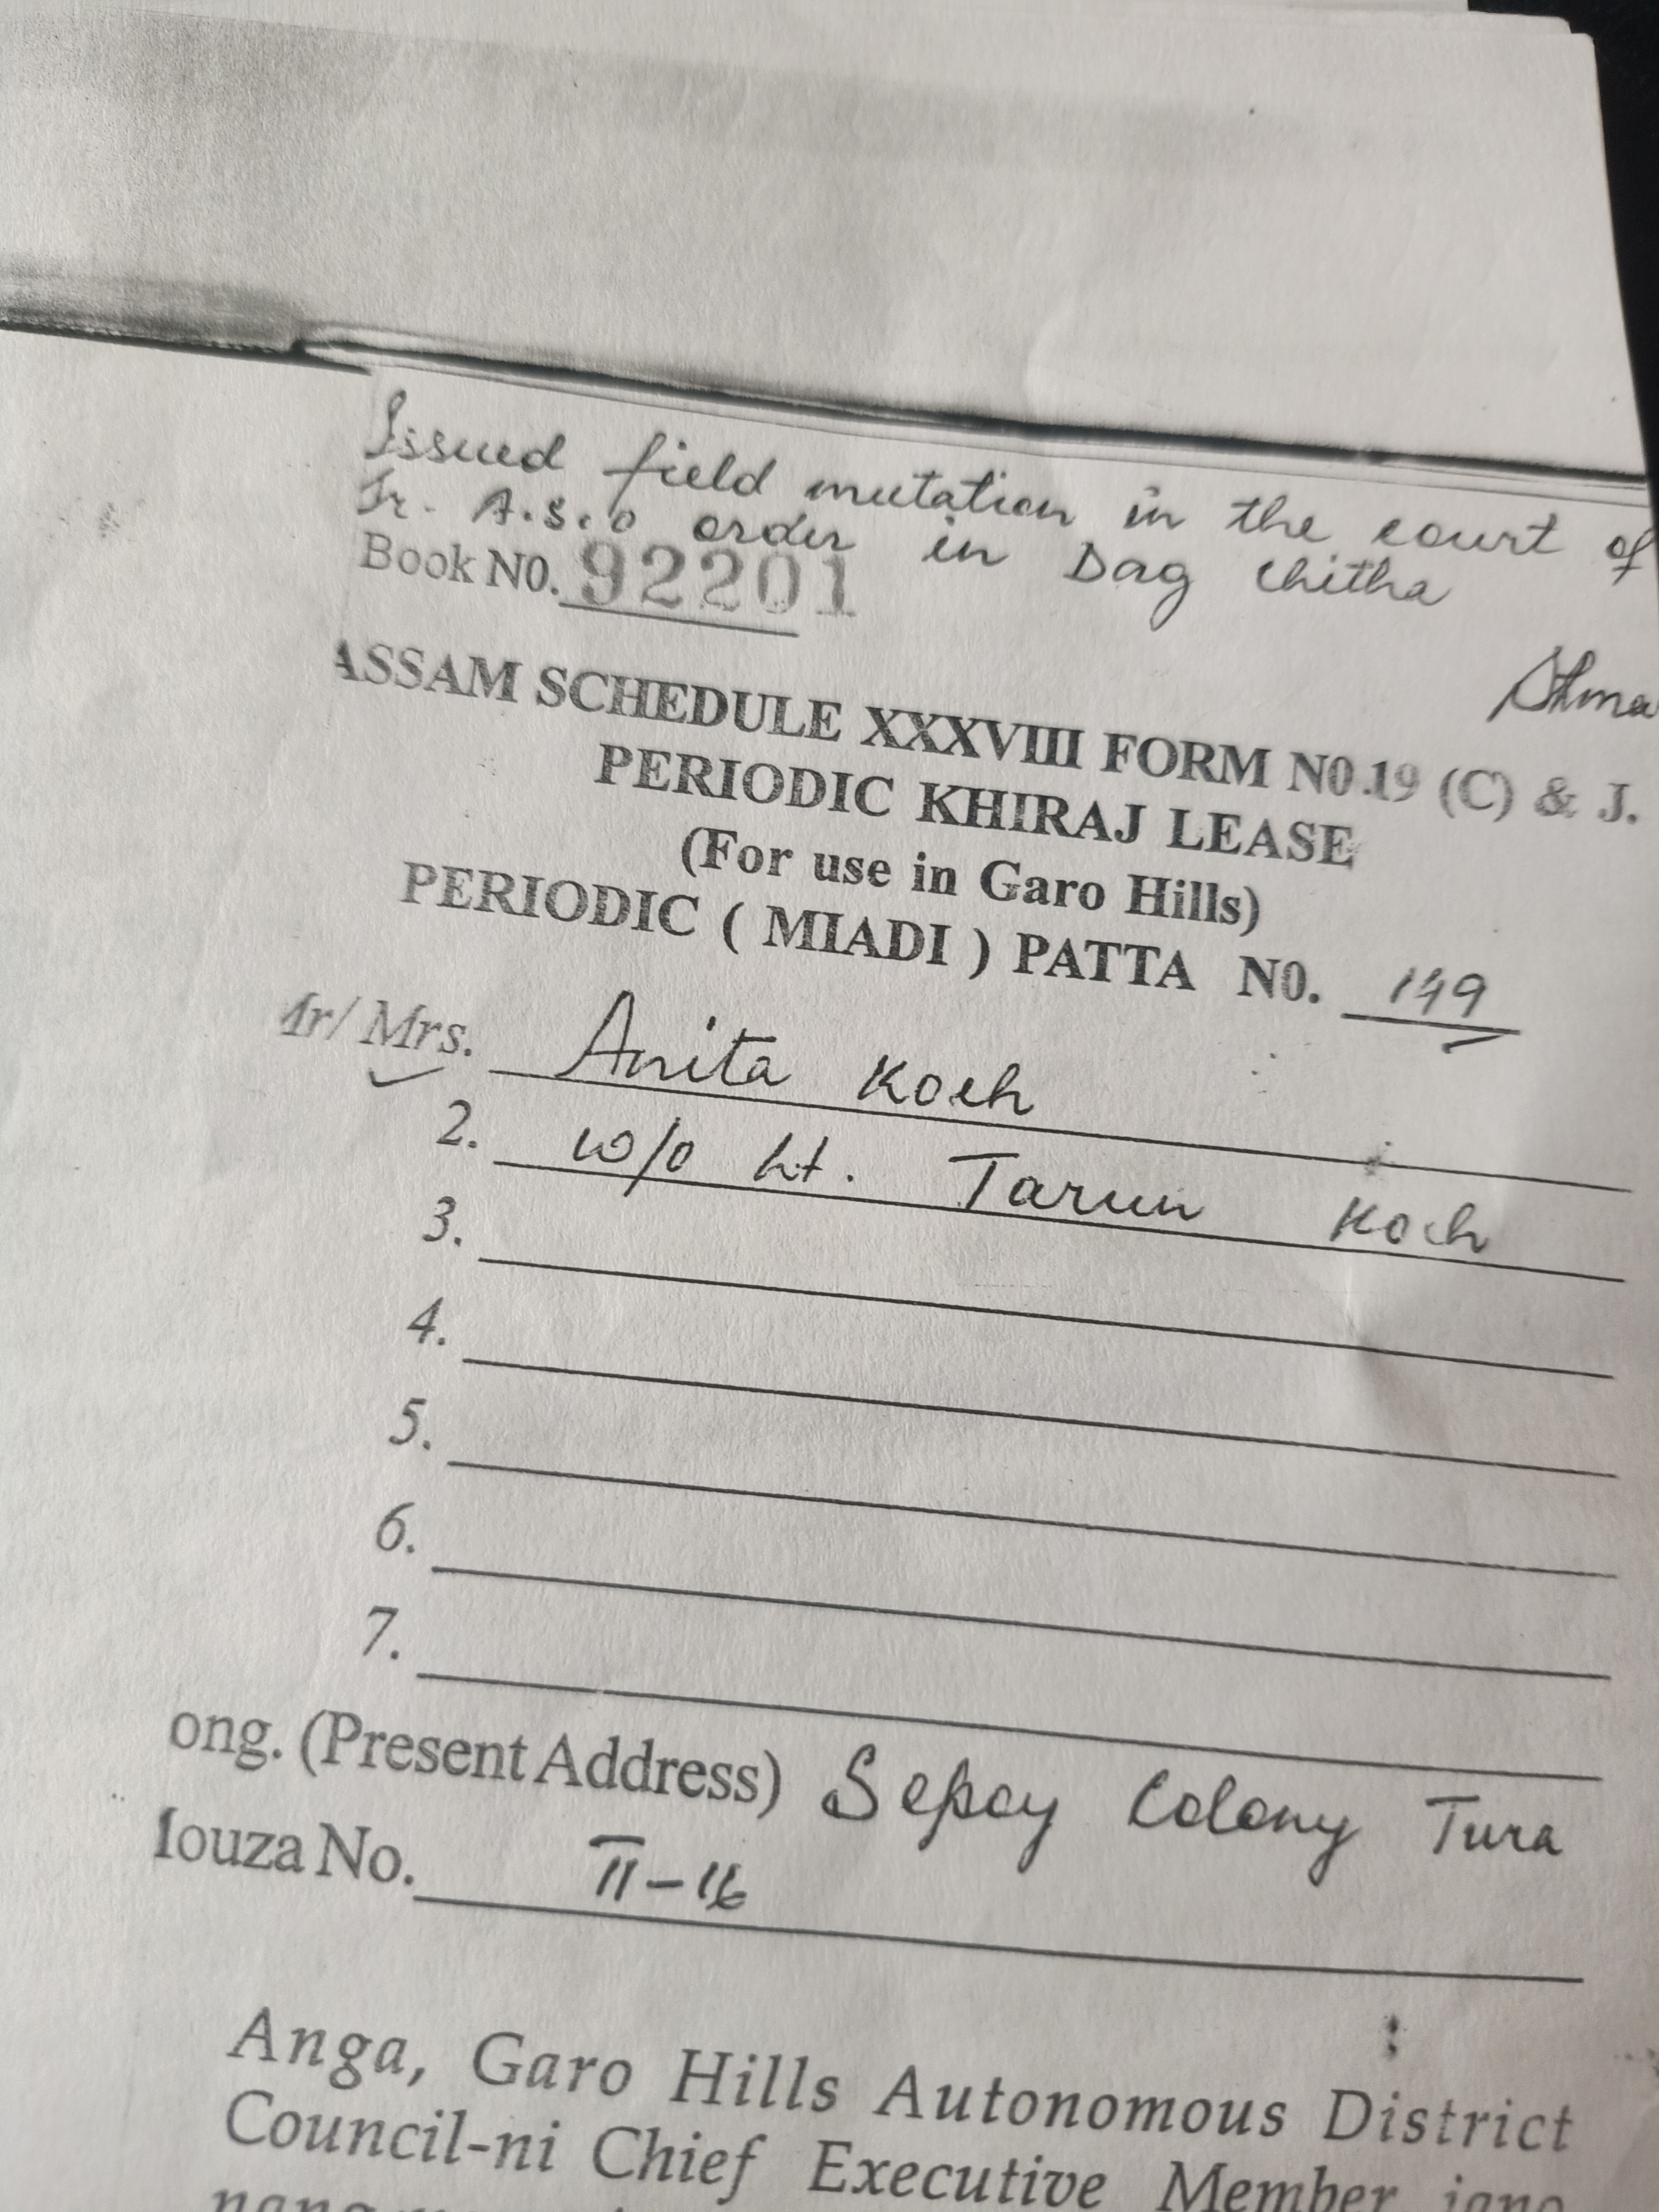 Issued field mutation in the court of
Jr. A.S.O order in Dag Chitha
Book N0. 92201
ASSAM SCHEDULE XXXVIII FORM N0.19 (C) & J.
PERIODIC KHIRAJ LEASE
(For use in Garo Hills)
PERIODIC ( MIADI ) PATTA N0. 149
Mr/ Mrs. Anita Koch
2. w/o Lt. Tarun Koch
3.
4.
5.
6.
7.
ong. (Present Address) Sepoy Colony Tura
Mouza No. II-16
Anga, Garo Hills Autonomous District
Council-ni Chief Executive Member